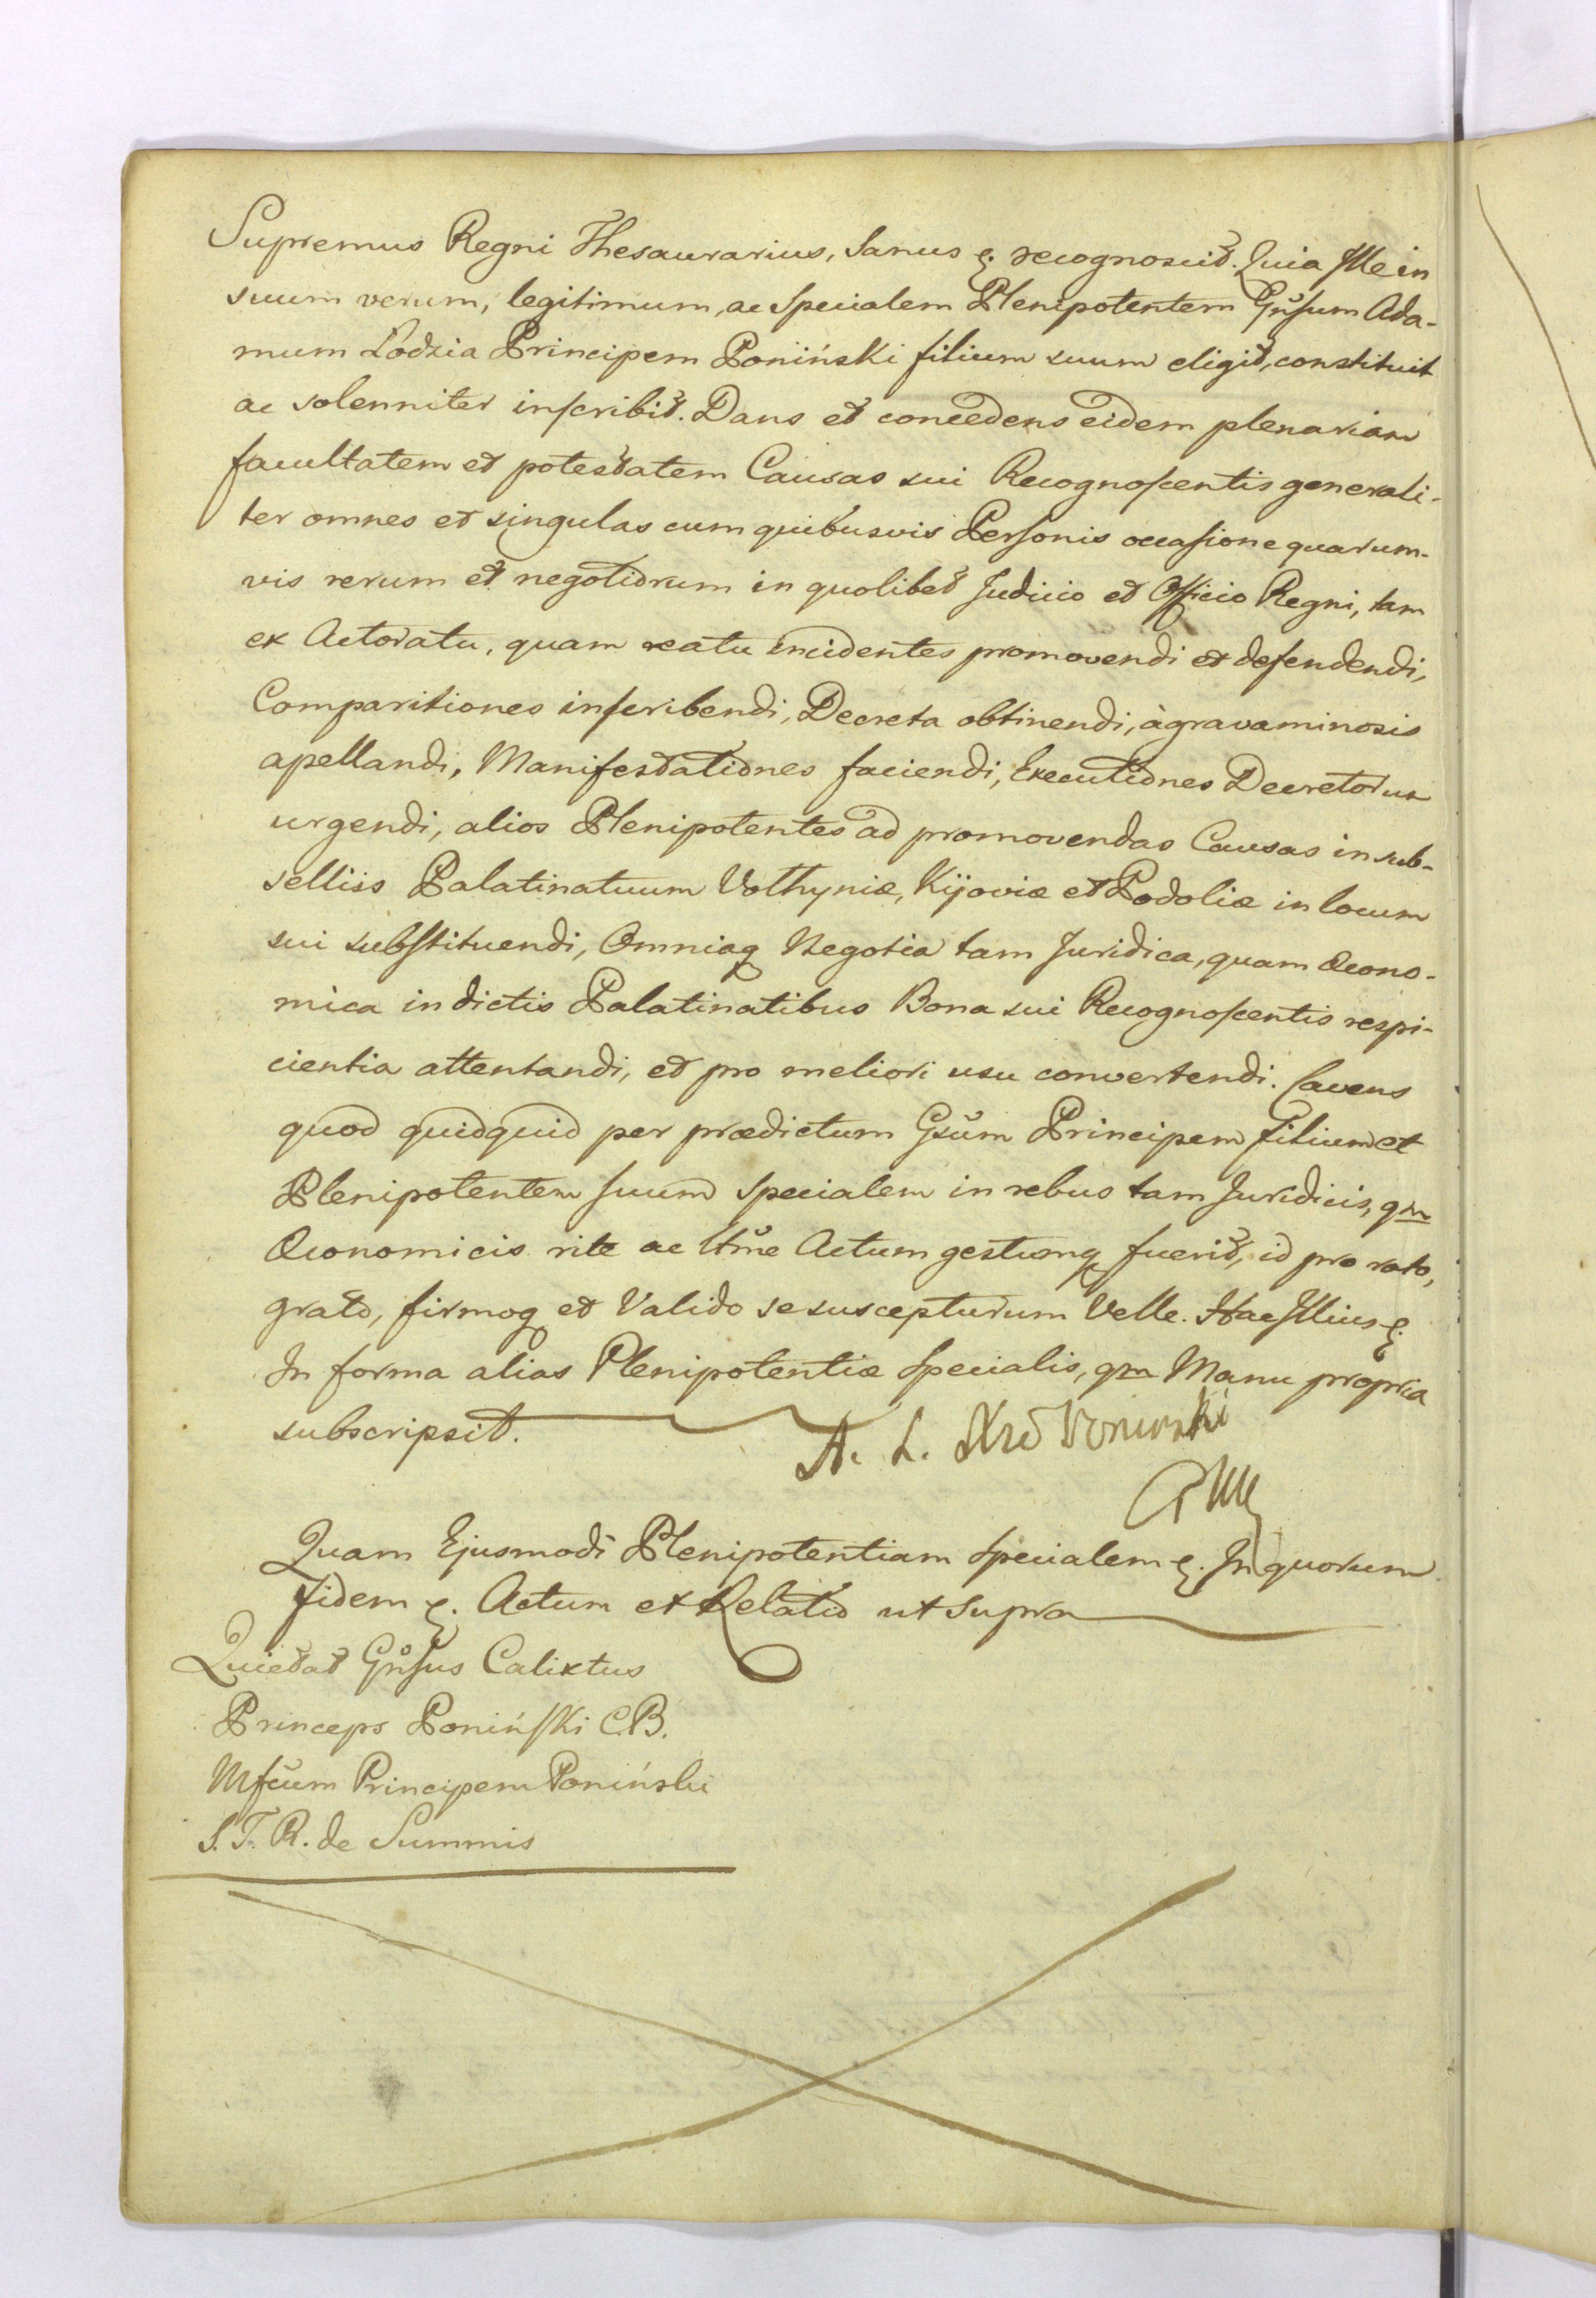 Supremus Regni Thesaurarius, Sanus &. recognoscit. Quia Ille in
suum verum, legitimum, ac Specialem Plenipotentem Gnŝum Ada-
mum Lodzia Principem Poniński filium suum eligit, constituit
ac solenniter inscribit. Dans et concedens eidem plenariam
facultatem et potestatem Causas sui Recognoscentis generali-
ter omnes et singulas cum quibusvis Personis occasione quarum-
vis rerum et negotiorum in quolibet Judicio et Officio Regni, tam
ex Actoratu, quam reatu incidentes promovendi et defendendi,
Comparitiones inscribendi, Decreta obtinendi, à gravaminosis
apellandi, Manifestationes faciendi, Executiones Decretorum
urgendi, alios Plenipotentes ad promovendas Causas in sub-
selliis Palatinatuum Volhyniæ, Kijoviæ et Podoliæ in locum
sui substituendi, Omniaq Negotia tam Juridica, quam Œcono-
mica in dictis Palatinatibus Bona sui Recognoscentis respi-
cientia attentandi, et pro meliori usu convertendi. Cavens
quod quidquid per prædictum Gsŭm Principem Filium et
Plenipotentem suum specialem in rebus tam Juridicis, qm
Œconomicis rite ac ltme Actum gestumq fuerit, id pro rato,
grato, firmoq et Valido se suscepturum Velle. Hac Illius &.
In forma alias Plenipotentiæ Specialis, qm Manu propria
subscripsit. A. L. Xże Poninski
Quam Ejusmodi Plenipotentiam Specialem &. In quorum
fidem &. Actum et Relatio ut Supra
Quietat Gnŝus Calixtus
Princeps Poniński C.B.
Mfcum Principem Poniński
S. T. R. de Summis